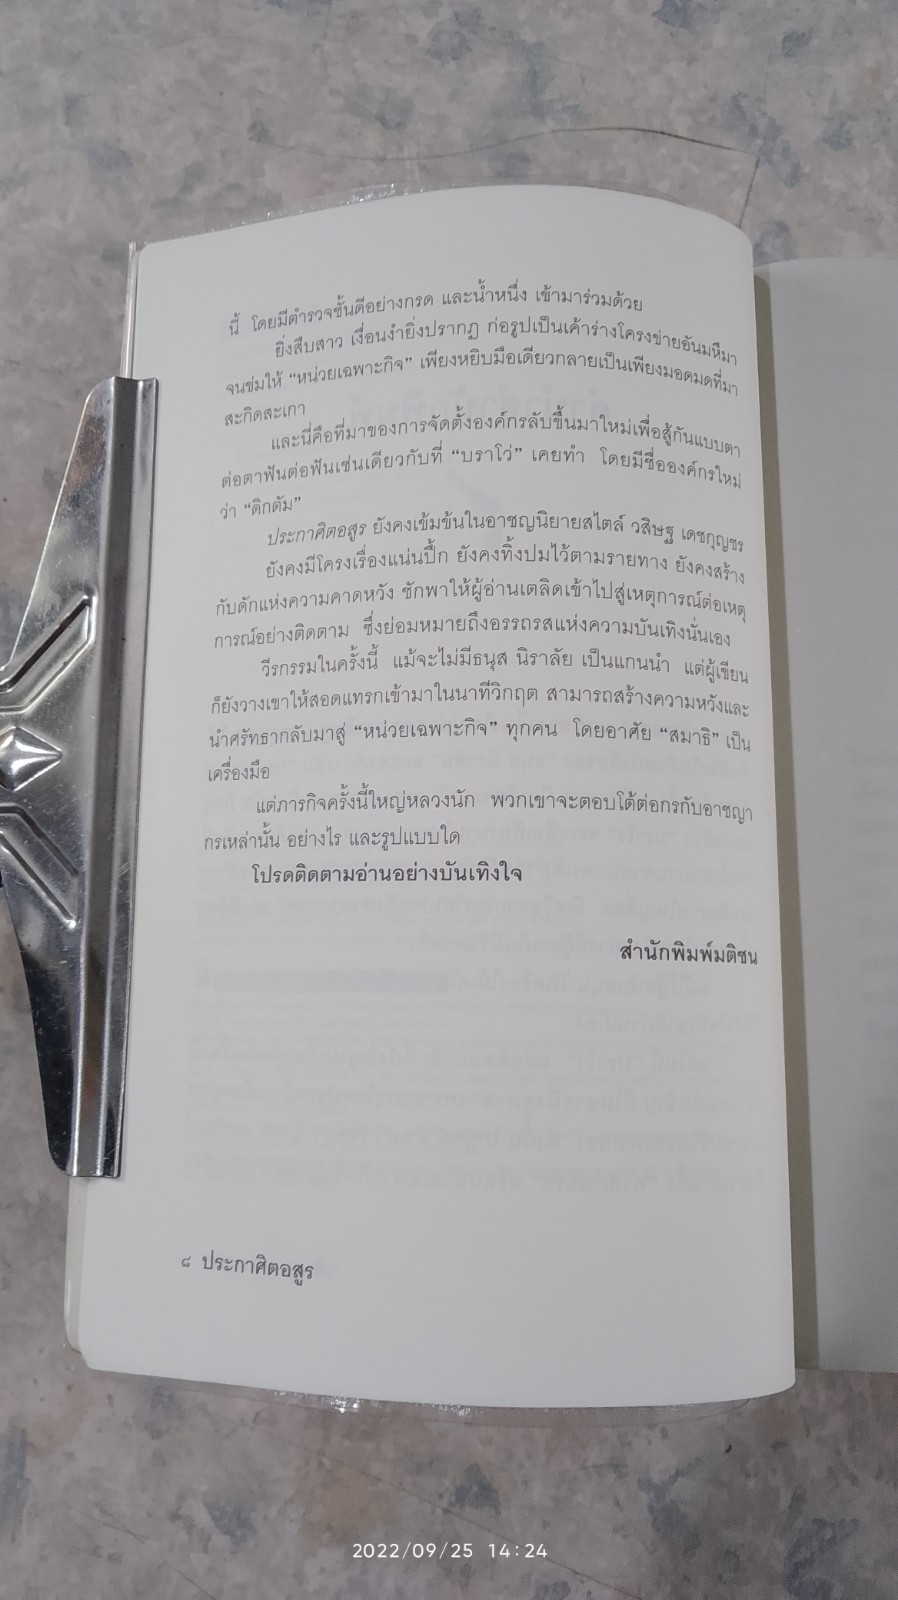 นี้ โดยมีตำรวจชั้นดีอย่างกรด และน้ำหนึ่ง เข้ามาร่วมด้วย
ยิ่งสืบสาว เงื่อนงำยิ่งปรากฏ ก่อรูปเป็นเค้าร่างโครงข่ายอันมหึมา
จนข่มให้ “หน่วยเฉพาะกิจ” เพียงหยิบมือเดียวกลายเป็นเพียงมอดมดที่มา
สะกิดสะเกา
และนี่คือที่มาของการจัดตั้งองค์กรลับขึ้นมาใหม่เพื่อสู้กันแบบตา
ต่อตาฟันต่อฟันเช่นเดียวกับที่ “บราโว่” เคยทำ โดยมีชื่อองค์กรใหม่
ว่า “ดิกตัม”
ประกาศิตอสูร ยังคงเข้มข้นในอาชญนิยายสไตล์ วสิษฐ เดชกุญชร
ยังคงมีโครงเรื่องแน่นปึ้ก ยังคงทิ้งปมไว้ตามรายทาง ยังคงสร้าง
กับดักแห่งความคาดหวัง ชักพาให้ผู้อ่านเตลิดเข้าไปสู่เหตุการณ์ต่อเหตุ
การณ์อย่างติดตาม ซึ่งย่อมหมายถึงอรรถรสแห่งความบันเทิงนั่นเอง
วีรกรรมในครั้งนี้ แม้จะไม่มีธนุส นิราลัย เป็นแกนนำ แต่ผู้เขียน
ก็ยังวางเขาให้สอดแทรกเข้ามาในนาทีวิกฤต สามารถสร้างความหวังและ
นำศรัทธากลับมาสู่ “หน่วยเฉพาะกิจ” ทุกคน โดยอาศัย “สมาธิ” เป็น
เครื่องมือ
แต่ภารกิจครั้งนี้ใหญ่หลวงนัก พวกเขาจะตอบโต้ต่อกรกับอาชญา
กรเหล่านั้น อย่างไร และรูปแบบใด
โปรดติดตามอ่านอย่างบันเทิงใจ
สำนักพิมพ์มติชน
๘ ประกาศิตอสูร
2022/09/25 14:24